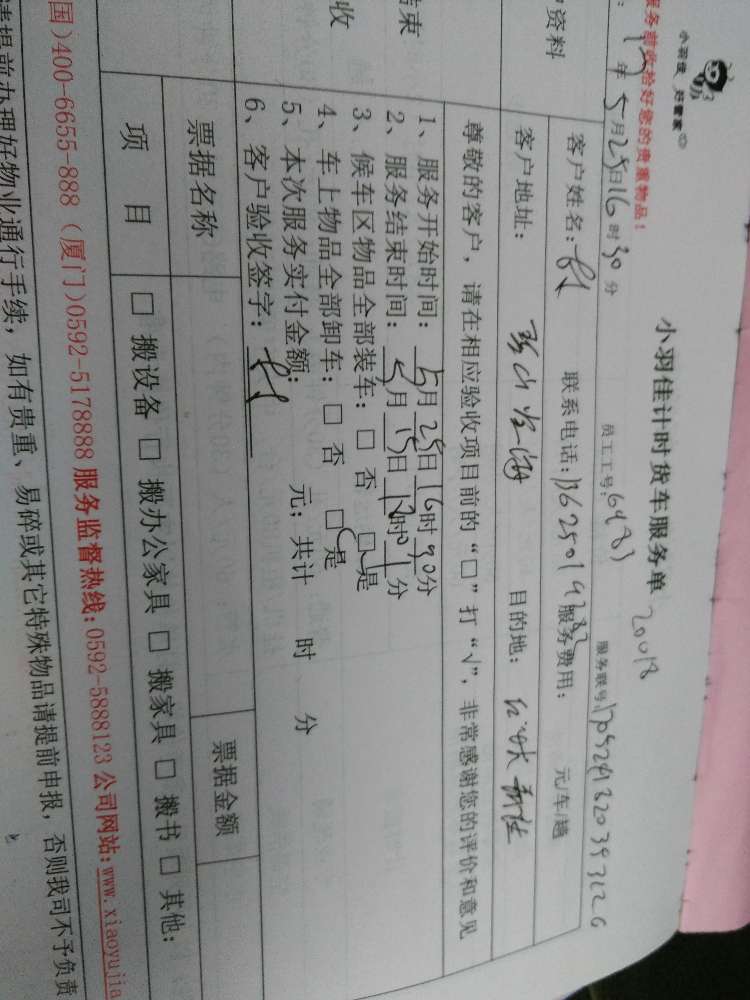 小羽佳 好管家
服务前收拾好您的贵重物品！
小羽佳计时货车服务单
20018
年5月25日16时30分
员工工号：6483
服务联号
客户姓名：
联系电话：
服务费用： 元/车/趟
资料
客户地址：
目的地：
尊敬的客户，请在相应验收项目前的“□”打“√”，非常感谢您的评价和意见
1、服务开始时间：5月25日16时30分
结束
2、服务结束时间：
3、候车区物品全部装车：□ 否 □ 是
收
4、车上物品全部卸车：□ 否 □ 是
5、本次服务实付金额： 元；共计 时 分
6、客户验收签字：
票据名称
票据金额
项 目
□ 搬设备 □ 搬办公家具 □ 搬家具 □ 搬书 □ 其他：
国)400-6655-888 (厦门)0592-5178888 服务监督热线:0592-5888123 公司网站:www.xiaoyujia
请提前办理好物业通行手续，如有贵重、易碎或其它特殊物品请提前申报，否则我司不予负责